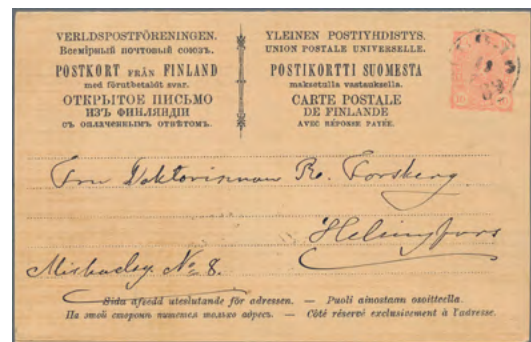 VERLDSPOSTFÖRENINGEN.
Всемірный почтовый союзъ.
POSTKORT FRÅN FINLAND
med förutbetaldt svar.
ОТКРЫТОЕ ПИСЬМО
ИЗЪ ФИНЛЯНДІИ
съ оплаченнымъ отвѣтомъ.
YLEINEN POSTIYHDISTYS.
UNION POSTALE UNIVERSELLE.
POSTIKORTTI SUOMESTA
maksetulla vastauksella.
CARTE POSTALE
DE FINLANDE
AVEC RÉPONSE PAYÉE.
10 10
Fru Doktorinnan Ro. Forsberg.
Helsingfors
No 8.
Sida afsedd uteslutande för adressen. — Puoli ainostaan osoitteella.
На этой сторонѣ пишется только адресъ. — Côté réservé exclusivement à l'adresse.